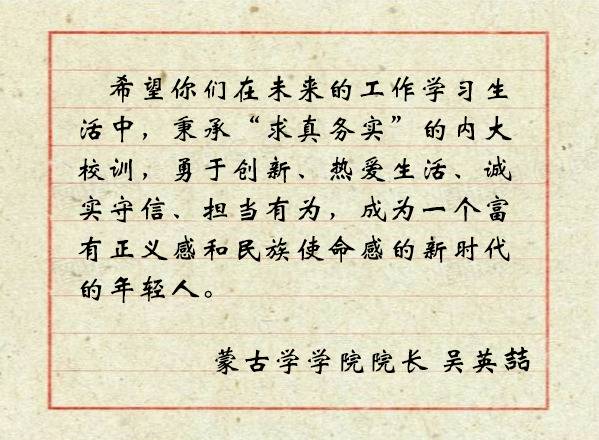 希望你们在未来的工作学习生
活中，秉承“求真务实”的内大
校训，勇于创新、热爱生活、诚
实守信、担当有为，成为一个富
有正义感和民族使命感的新时代
的年轻人。
蒙古学学院院长 吴英喆